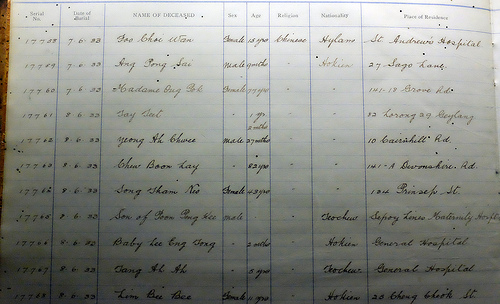 Serial No. Date of Burial NAME OF DECEASED Sex Age Religion Nationality Place of Residence
17758 7.6.33 Foo Choi Wan Female 15 yrs Chinese Hylam St. Andrew's Hospital
17759 7.6.33 Ang Peng Sai Male 9 mths " Hokien 27 Sago Lane
17760 7.6.33 Madame Female 77 yrs " " 141-18 Grove Rd.
17761 8.6.33 Tay " 1 yr 2 mths " " 82 Lorong 29 Geylang
17762 8.6.33 Yeong Ah Chwee Male 27 mths " " 10 Cairnhill Rd.
17763 8.6.33 Chew Boon Lay " 82 yrs " " 141-A Devonshire Rd.
8.6.33 Song Sham Kio Female 43 yrs " " 124 Prinsep St.
17765 8.6.33 Son of Poon Peng Hee Male " Teochew Sepoy Lines Maternity
17766 8.6.33 Baby Lee Eng Tong " 2 mths " Hokien General Hospital
17767 8.6.33 Tang Ah Ah " 5 yrs " Teochew General Hospital
17768 8.6.33 Lim Bee Bee Female 11 yrs " Hokien 23 Cheng Cheok St